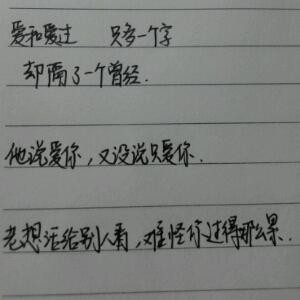 爱和爱过 只多一个字
却隔了一个曾经.
他说爱你,又没说只爱你.
老想活给别人看,难怪你过得那么累.